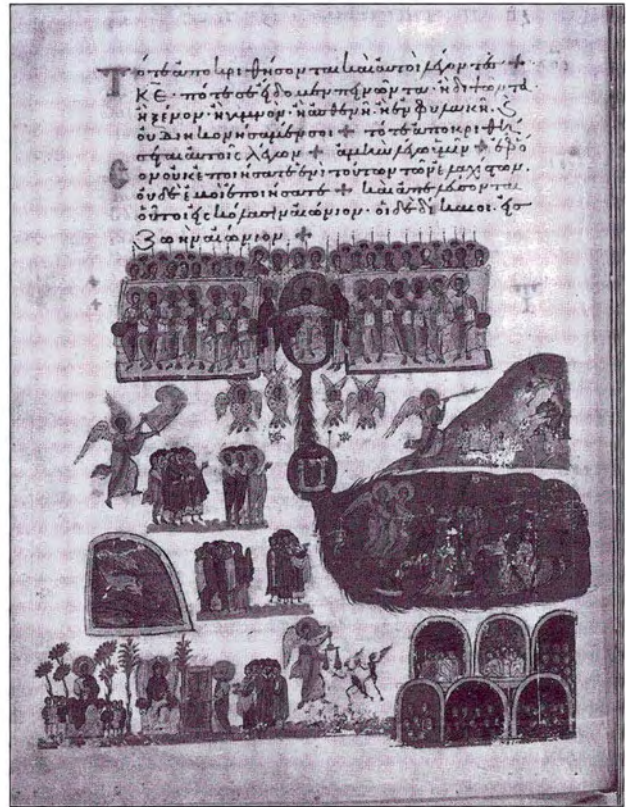 Τότε ἀποκριθήσονται καὶ αὐτοὶ λέγοντες +
ΚΕ · πότε σὲ εἴδομεν πεινῶντα · ἢ διψῶντα
ἢ ξένον · ἢ γυμνὸν · ἢ ἀσθενῆ · ἢ ἐν φυλακῆ ·
οὐ διηκονήσαμέν σοι + τότε ἀποκριθή
σεται αὐτοῖς λέγων + ἀμὴν λέγω ὑμῖν + ἐφ ὅ
σον οὐκ ἐποιήσατε ἑνὶ τούτων τῶν ἐλαχίστων ·
οὐδὲ ἐμοὶ ἐποιήσατε + καὶ ἀπελεύσονται
οὗτοι εἰς κόλασιν αἰώνιον · οἱ δὲ δίκαιοι · εἰς
ζωὴν αἰώνιον +